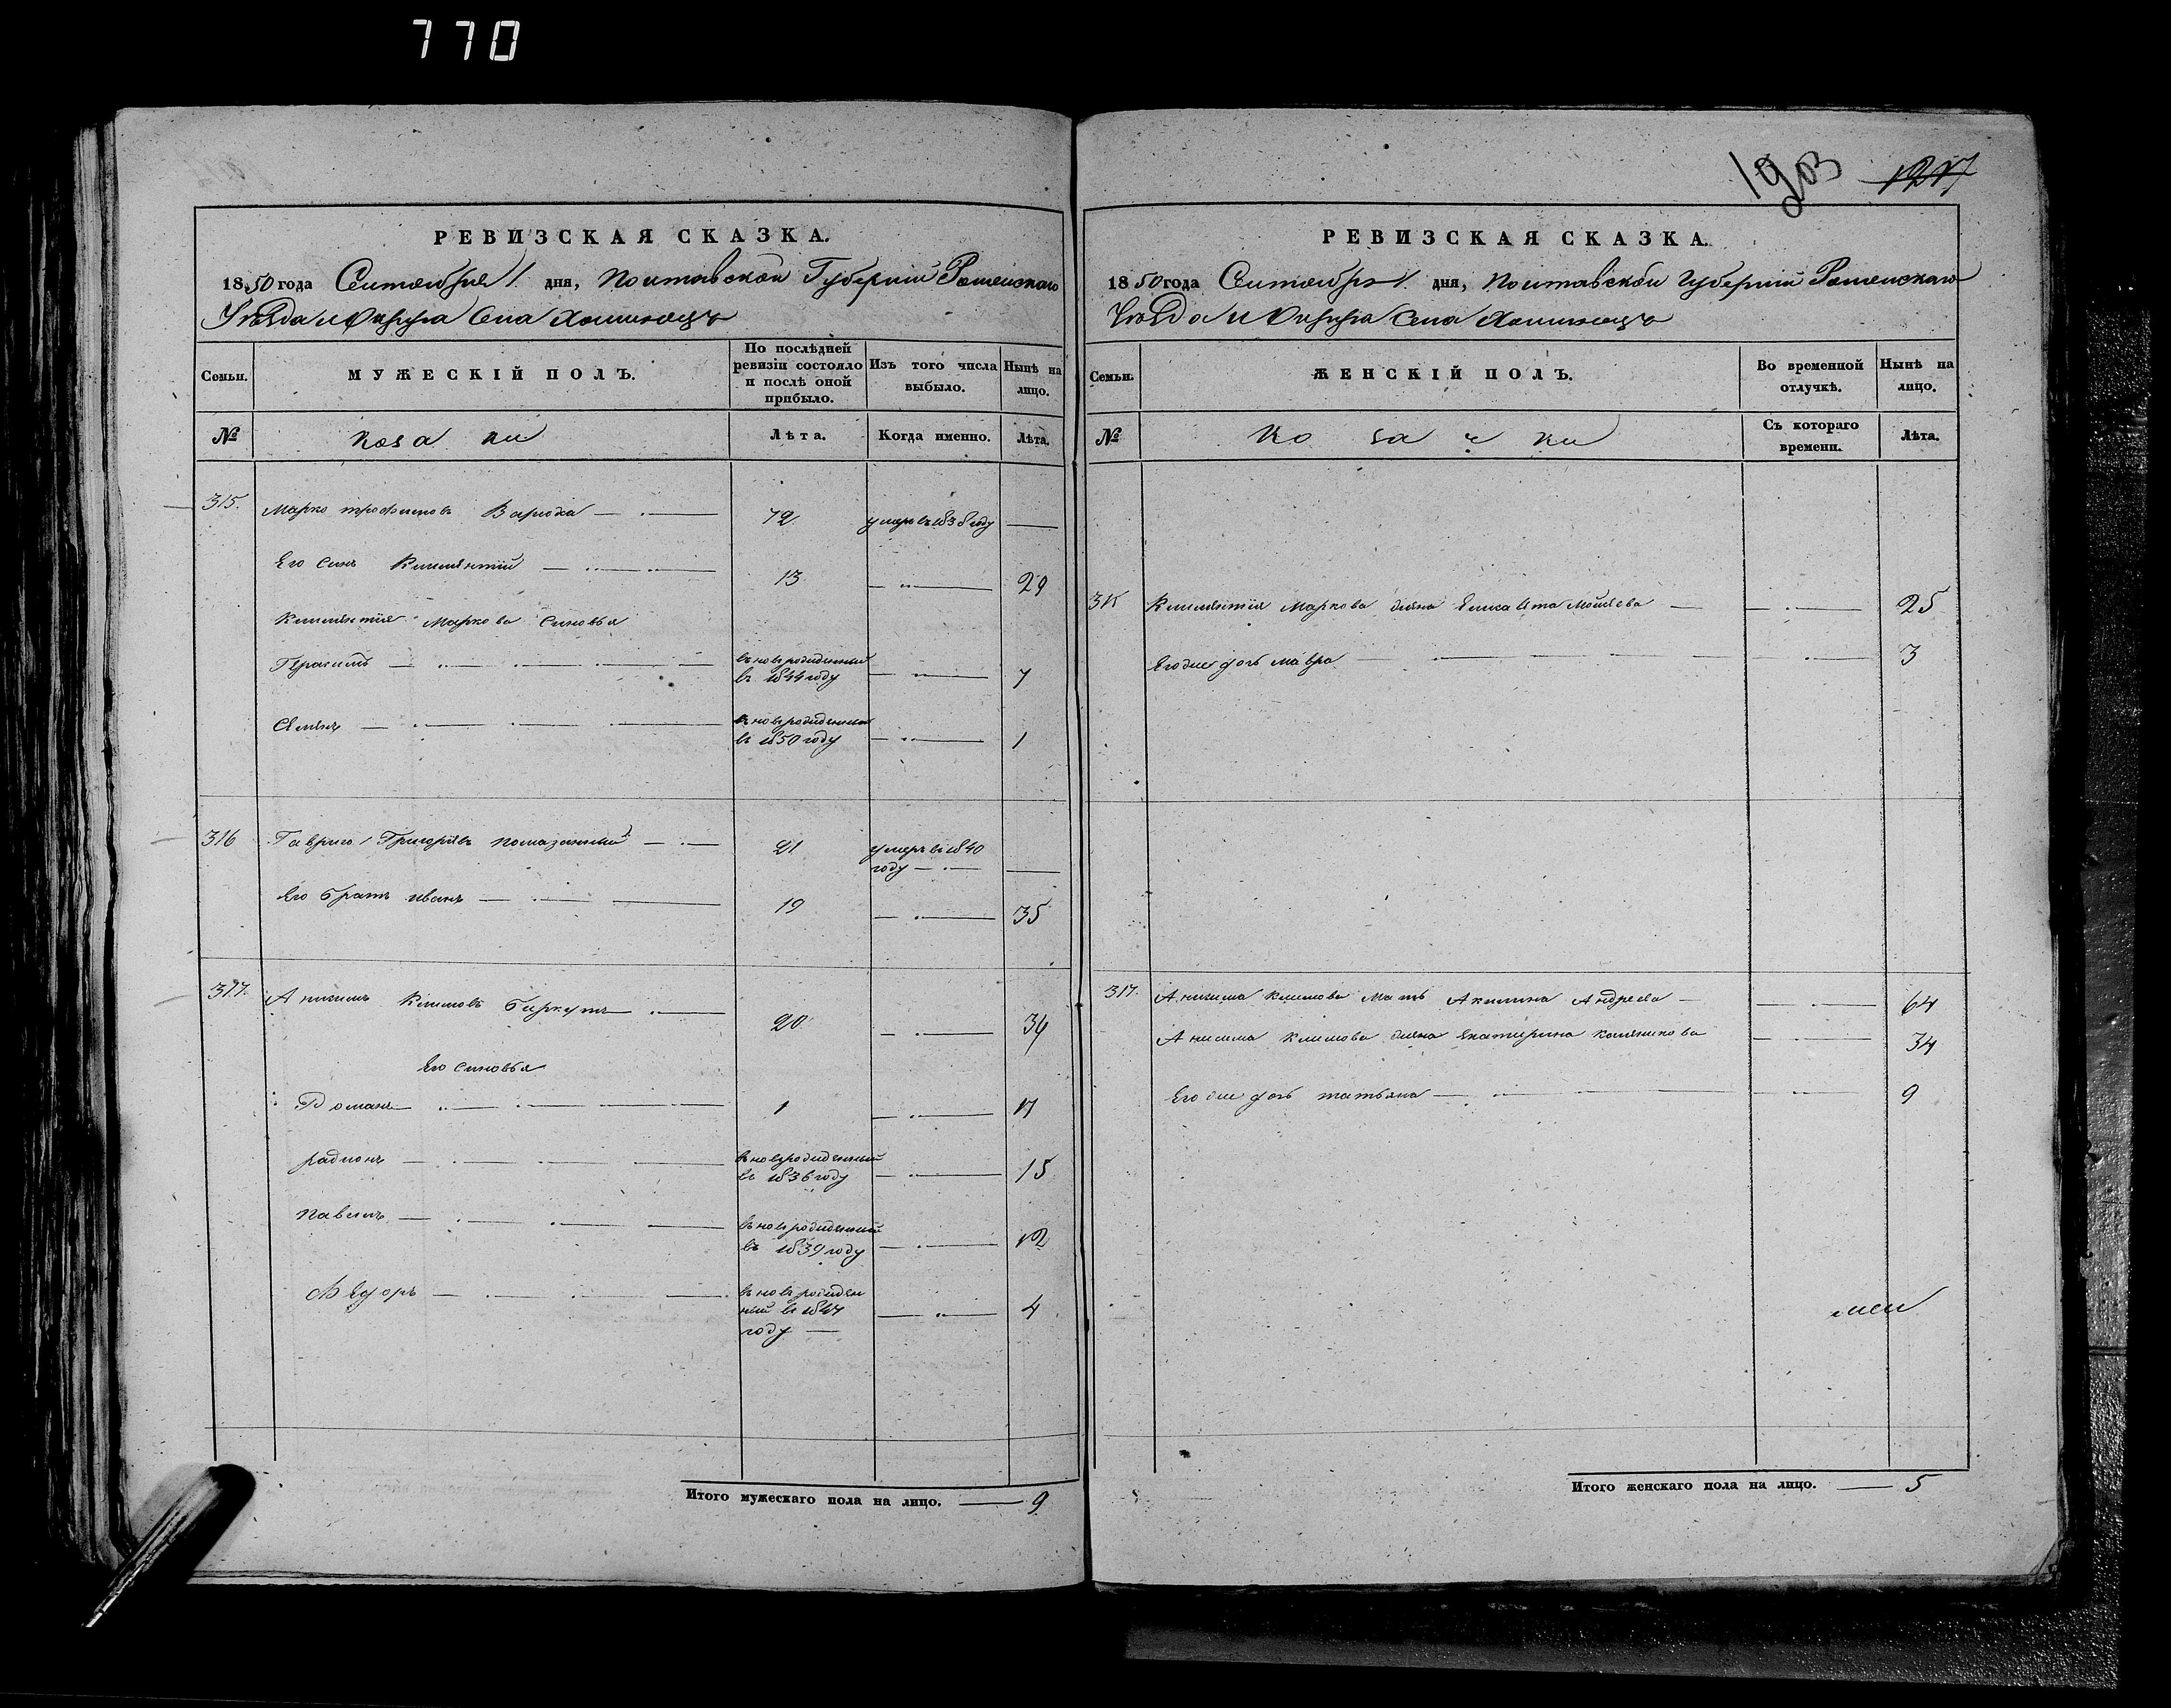 770
РЕВИЗСКАЯ СКАЗКА.
1850 года Сентября 1. дня, Полтавской Губерніи Роменскаго
Уѣзда и Округа Села Хоминецъ
Семьи.
МУЖЕСКІЙ ПОЛЪ.
По послѣдней ревизіи состояло и послѣ оной прибыло.
Изъ того числа выбыло.
Нынѣ на лицо.
№
Козаки
Лѣта.
Когда именно.
Лѣта.
315. Марко трофимовъ 72 умеръ в 1838 году
Его Синъ Климентій 13 29
Климентія Маркова Синовья
Герасимъ вновърожденный в 1844 году 7
Семенъ вновърожденный въ 1850 году 1
316 Гаврило Григоріевъ помазанный 21 умеръ в 1840 году
Его братъ иванъ 19 35
317. Анисимъ Климовъ Биркутъ 20 34
Его Синовья
Романъ 1 17
радионъ вновърожденный въ 1836 году 15
павелъ вновърожденный въ 1839 году 12
Ѳедоръ вновърожденный в 1847 году 4
Итого мужескаго пола на лицо. 9.
1203 1217
РЕВИЗСКАЯ СКАЗКА.
1850 года Сентября 1. дня, Полтавской Губерніи Роменскаго
Уѣзда и Округа Села Хоминецъ
Семьи.
ЖЕНСКІЙ ПОЛЪ.
Во временной отлучкѣ.
Нынѣ на лицо.
№
Козачки
Съ котораго времени.
Лѣта.
315 Климентія Маркова жена Мойсѣева 25
Егоже дочь Мавра 3
317. Анисима Климова Мать Акилина Андреева 64
Анисима Климова жена Екатерина 34
Егоже дочь татьяна 9
Итого женскаго пола на лицо. 5